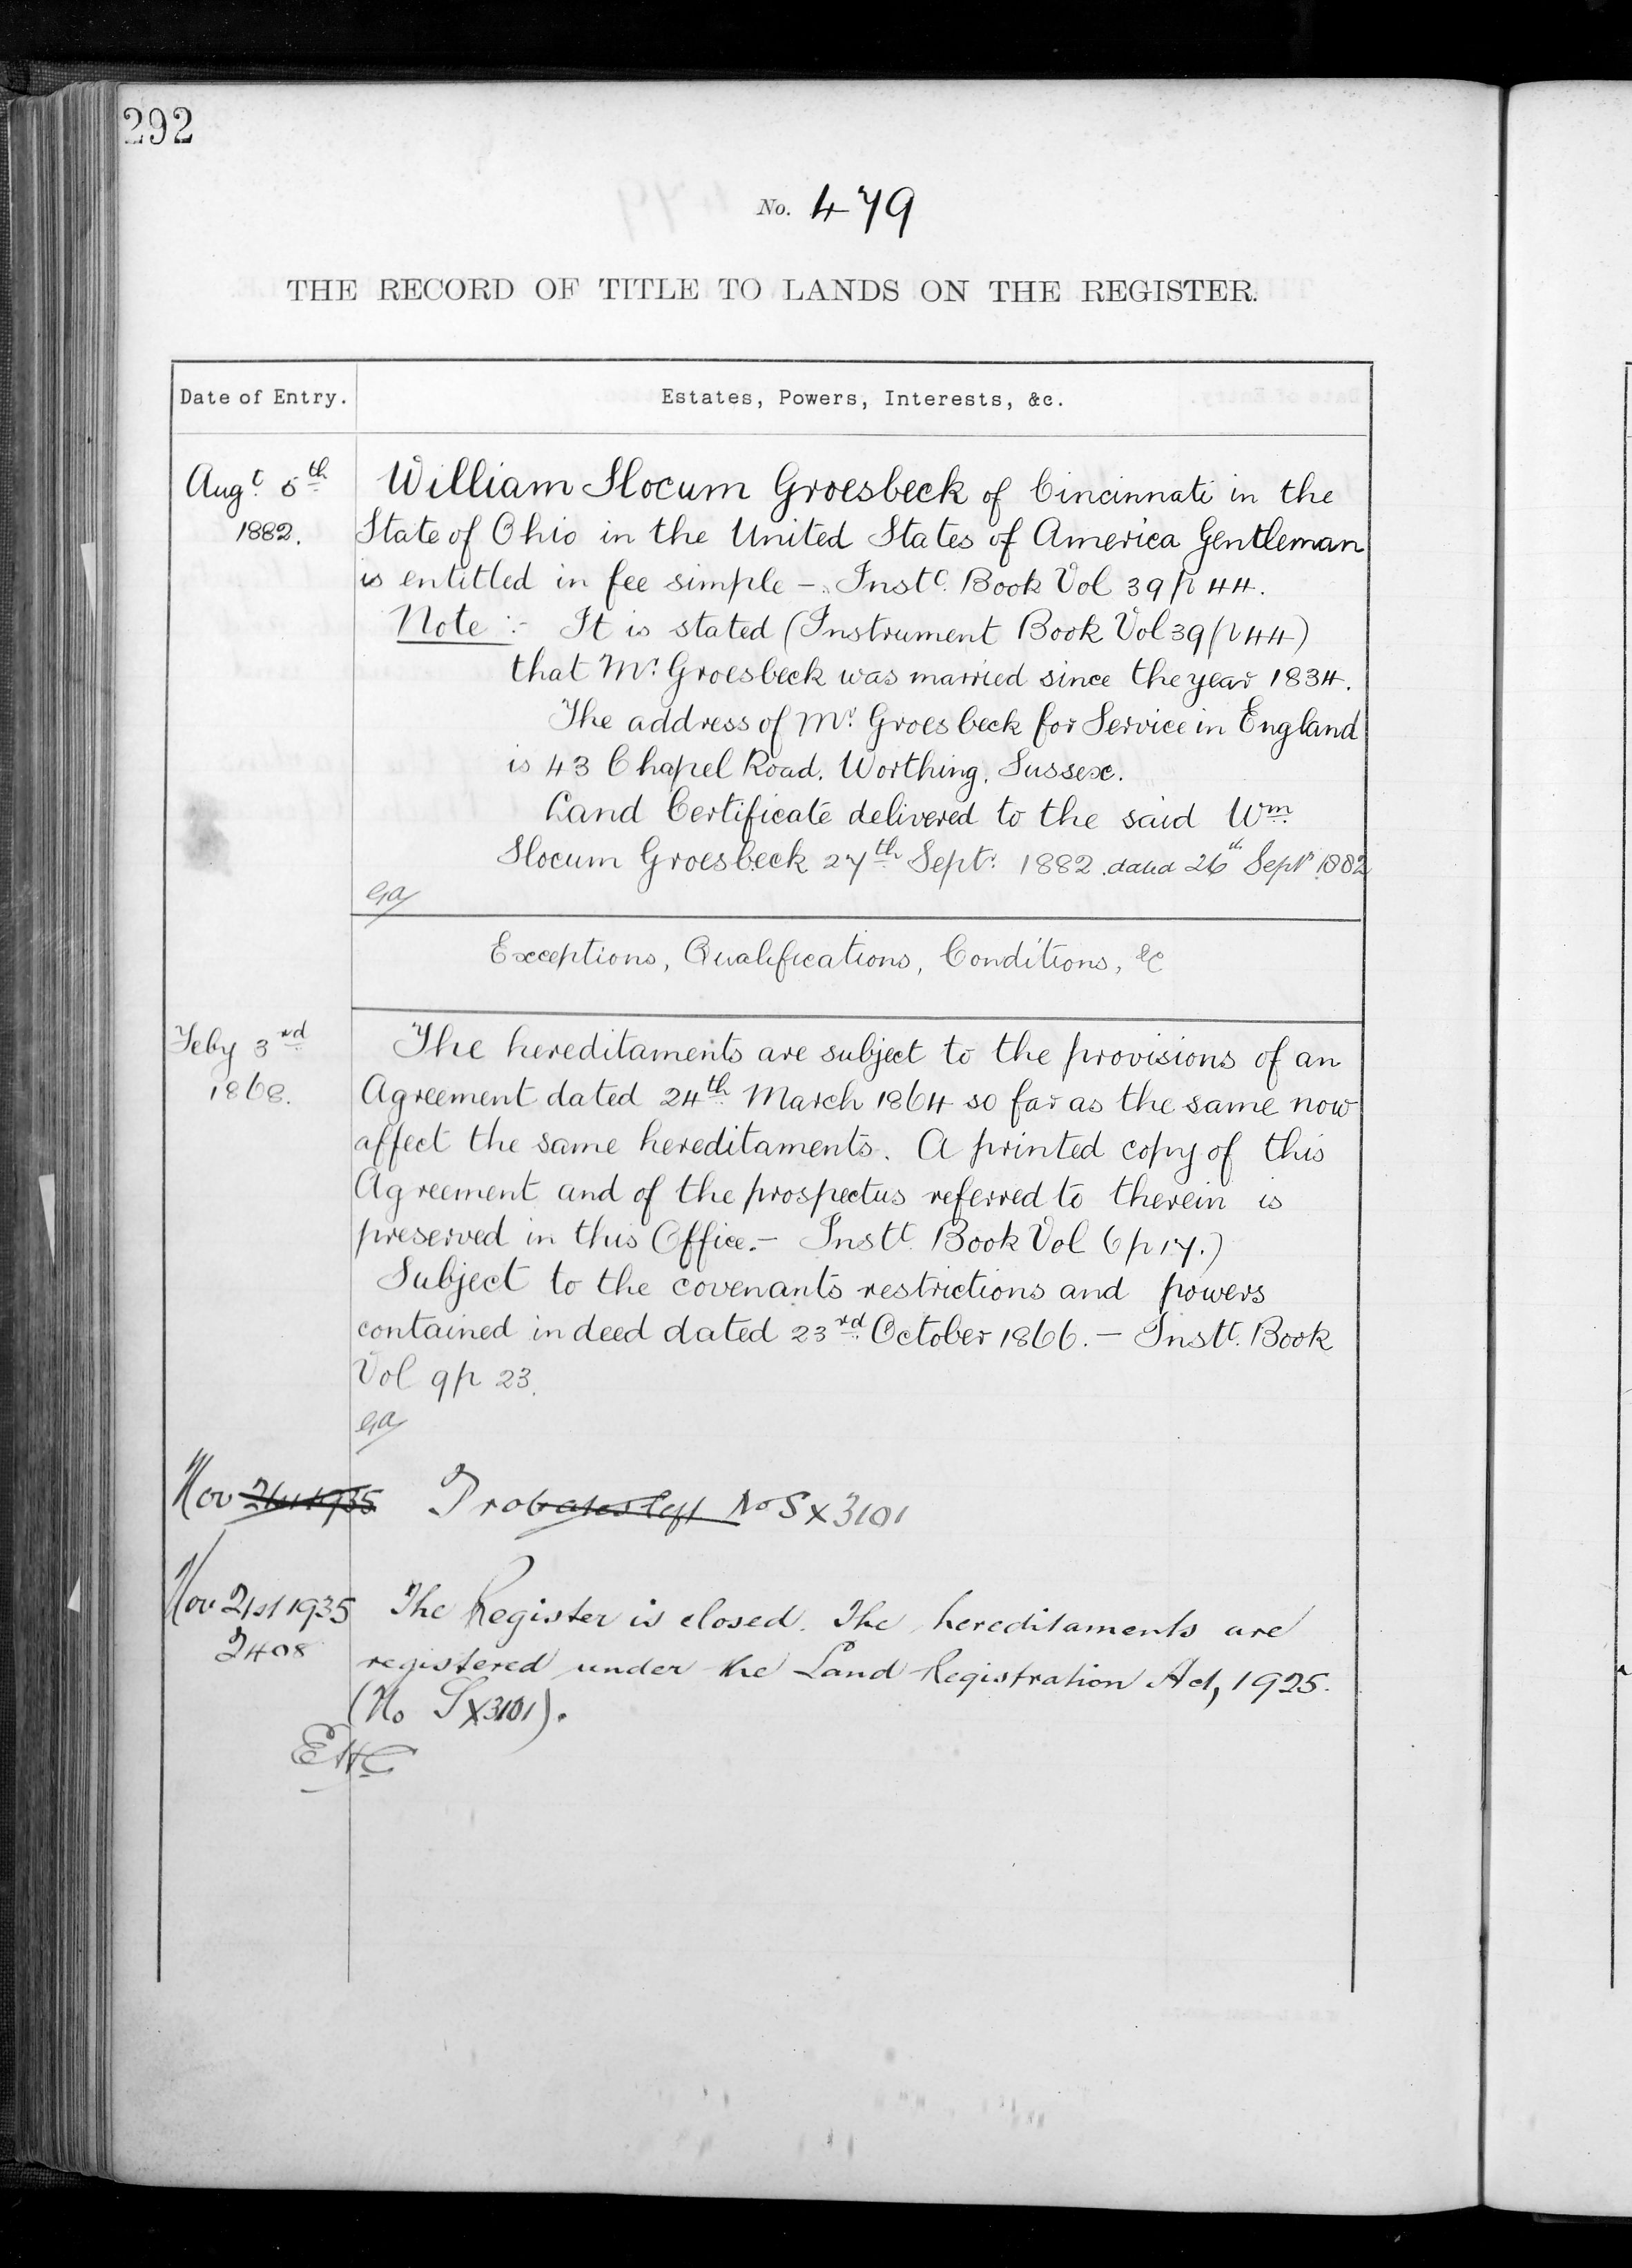 292
No. 479
THE RECORD OF TITLE TO LANDS ON THE REGISTER.
Date of Entry. Estates, Powers, Interests, &c.
Augt. 5th William Slocum Groesbeck of Cincinnati in the
1882. State of Ohio in the United States of America Gentleman
is entitled in fee simple - Instt. Book Vol 39 p 44.
Note :- It is stated (Instrument Book Vol 39 p 44)
that Mr. Groesbeck was married since the year 1834.
The address of Mr. Groesbeck for Service in England
is 43 Chapel Road. Worthing. Sussex.
Land Certificate delivered to the said Wm.
Slocum Groesbeck 27th Septr. 1882 dated 26th Septr 1882
Exceptions, Qualifications, Conditions, &c
Feby 3rd The hereditaments are subject to the provisions of an
1868. Agreement dated 24th March 1864 so far as the same now
affect the same hereditaments. A printed copy of this
Agreement and of the prospectus referred to therein is
preserved in this Office.- Instt. Book Vol 6 p 17.)
Subject to the covenants restrictions and powers
contained in deed dated 23rd October 1866. - Instt. Book
Vol 9 p 23.
Nov 21st 1935 No SX3101
Nov 21st 1935 The Register is closed. The hereditaments are
2408 registered under the Land Registration Act, 1925.
(No SX3101).
EHC